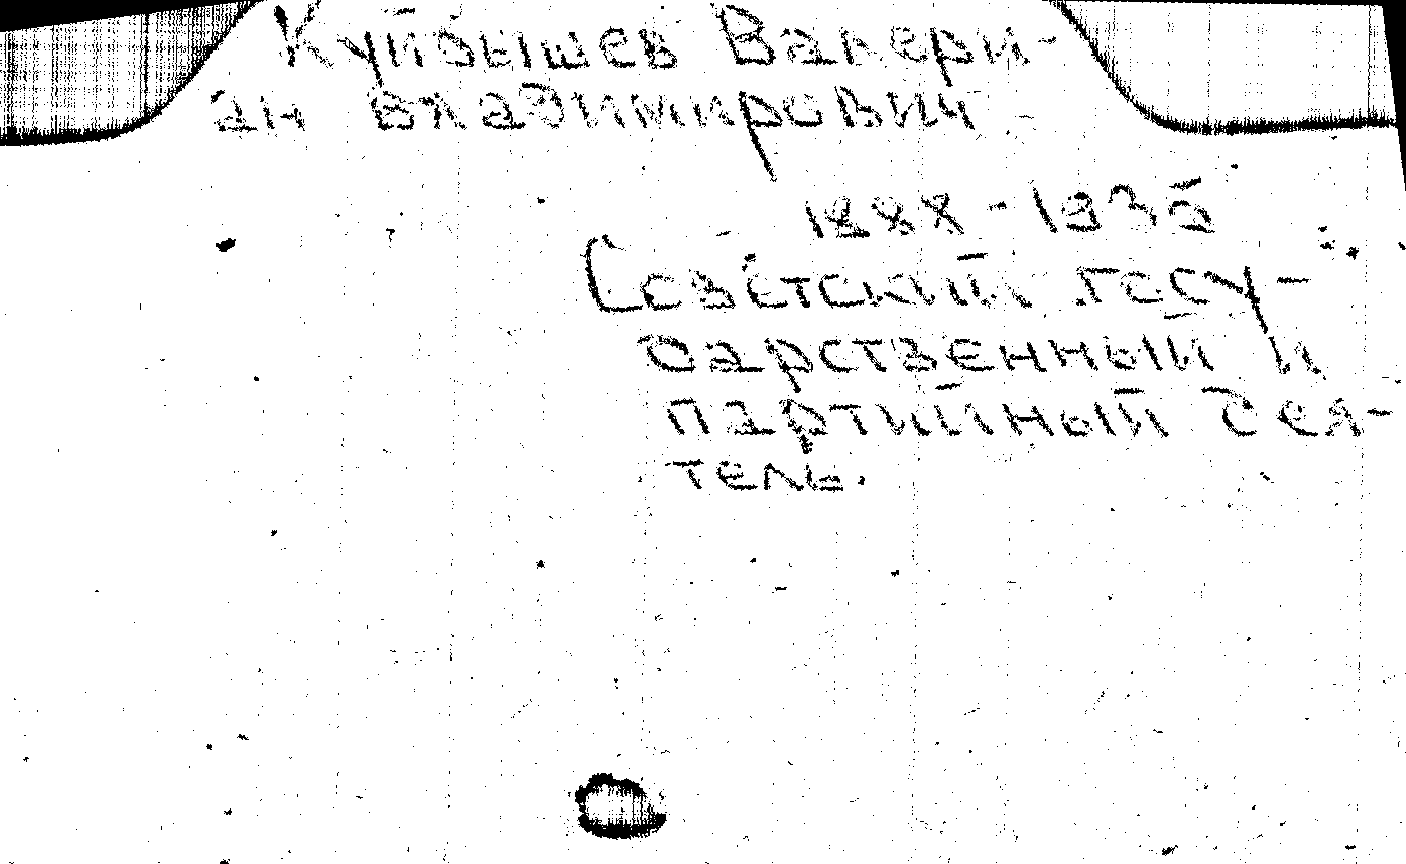 Куйбышев Валери-
ан Владимирович
1888-1935
Советский госу-
дарственный и
партийный дея-
тель.